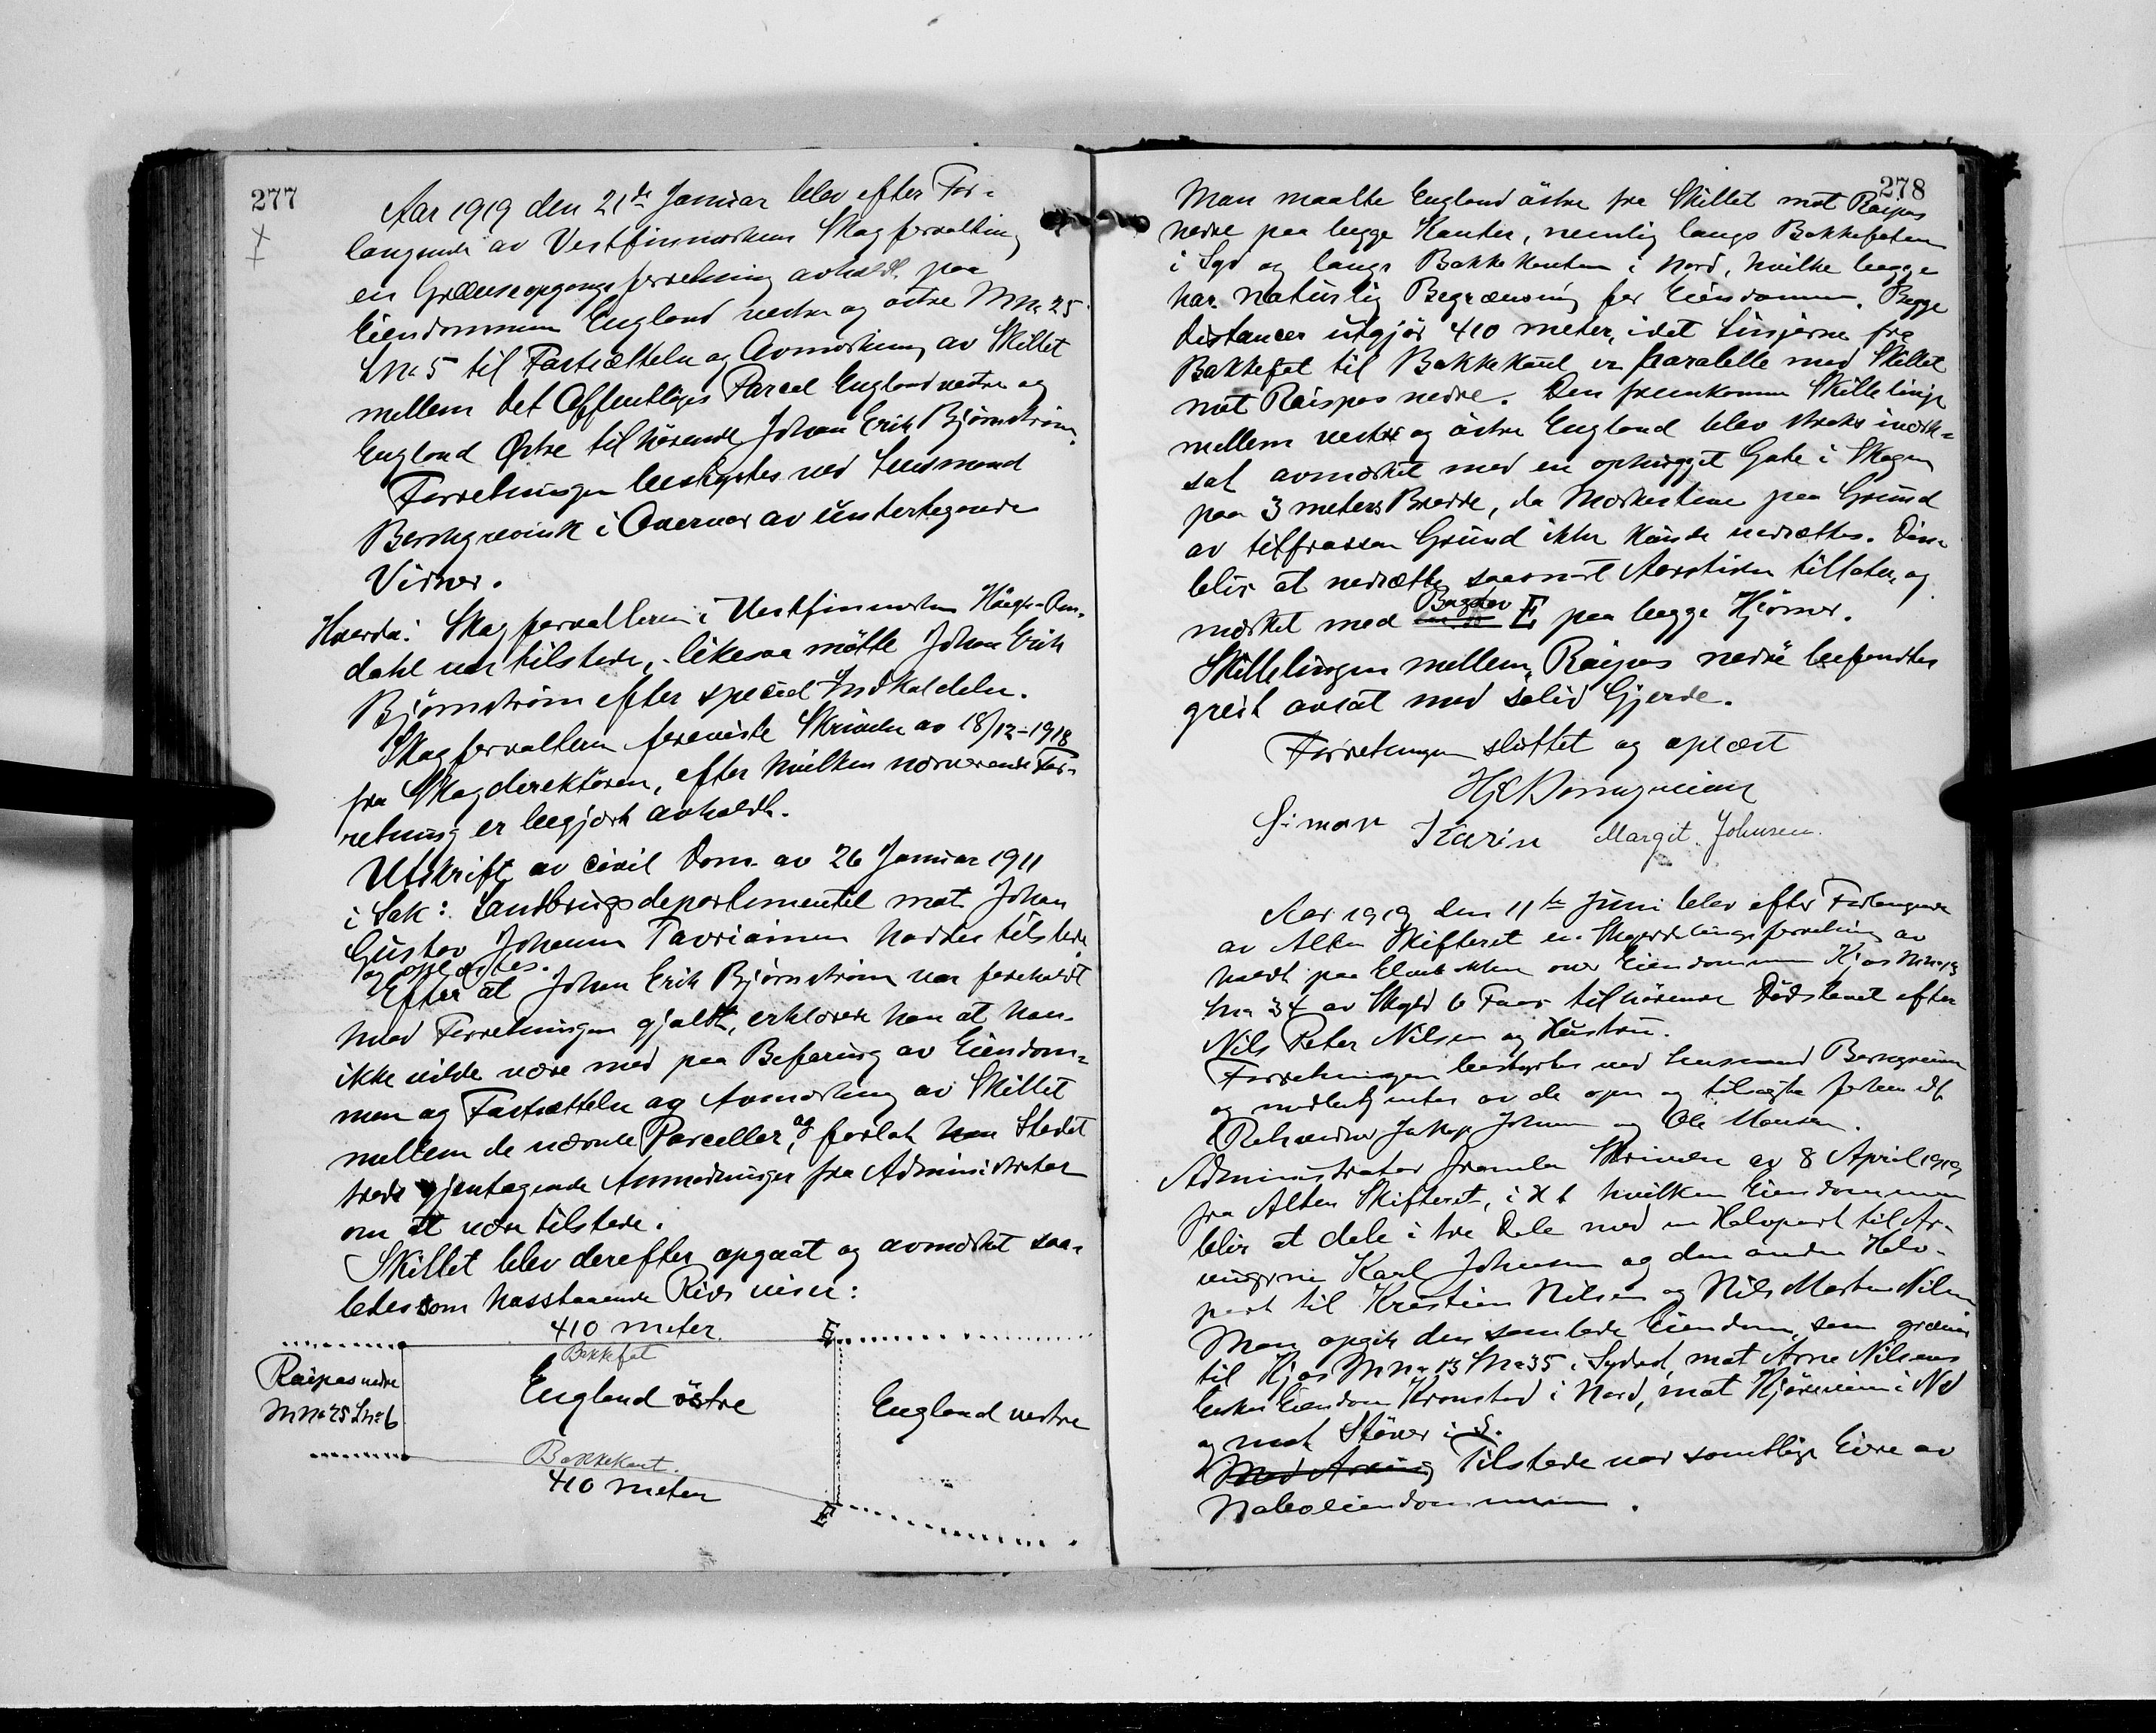 277
Aar 1919 den 21de Januar blev efter For-
langende av Vestfinmarkens Skogforvaltning
en Grænseopgangsforretning avholdt paa
Eiendommen England vestre og østre Mno 25
Lno 5 til Fastsættelse og Avmerkning av Skillet
mellem det Offentliges Parcel England vestre og
England Østre tilhørende Johan Erik Bjørnstrøm.
Forretningen bestyrtes ved Lensmand
Borchgrevink i Overvær av undertegnede
Vidner.
Hvorda: Skogforvalteren i Vestfinmarken Høegh-Om-
dahl var tilstede, likesaa møtte Johan Erik
Bjørnstrøm efter speciel Indkaldelse.
Skogforvalteren foreviste Skrivelse av 18/12-1918
fra Skogdirektøren, efter hvilken nærværende For-
retning er begjært avholdt.
Utskrift av civil Dom av 26 Januar 1911
i Sak: Landbrugsdepartementet mot Johan
Gustav Johansen Tavriainen haddes tilstede
og oplæstes.
Efter at Johan Erik Bjørnstrøm var foreholdt
hvad Forretningen gjaldt, erklærede han at han
ikke vilde være med paa Befaring av Eiendom-
men og Fastsættelse og Avmerkning av Skillet
mellem de nævnte Parceller, og forlot han Stedet
trods gjentagende Anmodninger fra Administrator
om at være tilstede.
Skillet blev derefter opgaat og avmerket saa-
ledes som hosstaaende Rids viser:
410 meter
Bakkefot
E
Raipas nedre
Mno 25 Lno 6
England östre
England vestre
Bakkekant.
410 meter
E
278
Man maalte England östre fra Skillet mot Raipas
nedre paa begge Kanter, nemlig langs Bakkefoten
i Syd og langs Bakkekanten i Nord, hvilke begge
har naturlig Begrænsning for Eiendommen. Begge
Distancer utgjör 410 meter, idet Linjerne fra
Bakkefot til Bakkekant er paralelle med Skillet
mot Raipas nedre. Den fremkomne Skillelinje
mellem vestre og östre England blev straks
sat avmerket med en ophugget Gate i Skogen
paa 3 meters Bredde, da Merkestene paa Grund
av tilfrossen Grund ikke kunde nedsættes. Disse
blir at nedsætte saasnart Aarstiden tillater, og
merket med Bogstav E paa begge Hjörner.
Skillelinjen mellem "Raipas nedre" befandtes
greit avsat med solid Gjerde.
Forretningen sluttet og oplæst
HJBorchgrevink
Simon Karin Margit Johnsen.
Aar 1919 den 11te Juni blev efter Forlangende
av Alten Skifteret en Skylddelingsforretning av
holdt paa Elvebakken over Eiendommen Kjos Mno 13
Lno 34 av Skyld 6 Tmar tilhørende Dödsboet efter
Nils Peter Nilsen og Hustru.
Forretningen bestyrtes ved Lensmand Borchgrevink
og medbetjentes av de opn og tilsagte forhen edf
Retsvidner Johan Johnsen og Ole Monsen.
Administrator fremla Skrivelse av 8 April 1919
fra Alten Skifteret, i H t hvilken Eiendommen
blir at dele i tre Dele med en Halvpart til Ar-
vingerne Karl Johnsen og den anden Halv-
part til Kristian Nilsen og Nils Morten Nilsen
Man opgik den samlede Eiendom, som grænser
til Kjos Mno 13 Lno 35 i Sydvest, mot Arne Nilsens
Enkes Eiendom Kronstad i Nord, mot Kjörveien i NØ
og mot Stöver i S.
Tilstede var samtlige Eiere av
Naboeiendommene.